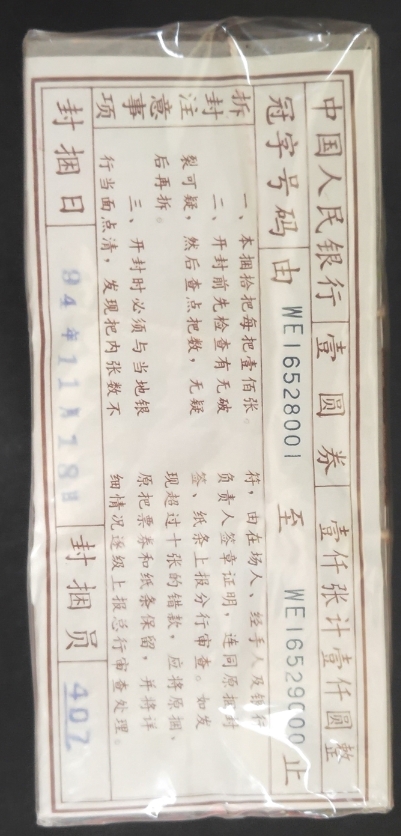 中国人民银行 壹圆券 壹仟张计壹仟圆整
冠字号码由 WE16528001 至 WE16529000 止
拆封注意事项
一、本捆拾把每把壹佰张。
二、开封前先检查有无破
裂可疑，然后查点把数，无疑
后再拆。
三、开封时必须与当地银
行当面点清，发现把内张数不
符，由在场人、经手人及银行
负责人签章证明，连同原捆封
签、纸条上报分行审查。如发
现超过十张的错款，应将原捆、
原把票券和纸条保留，并将详
细情况逐级上报总行审查处理。
封捆日 94年11月18日 封捆员 407